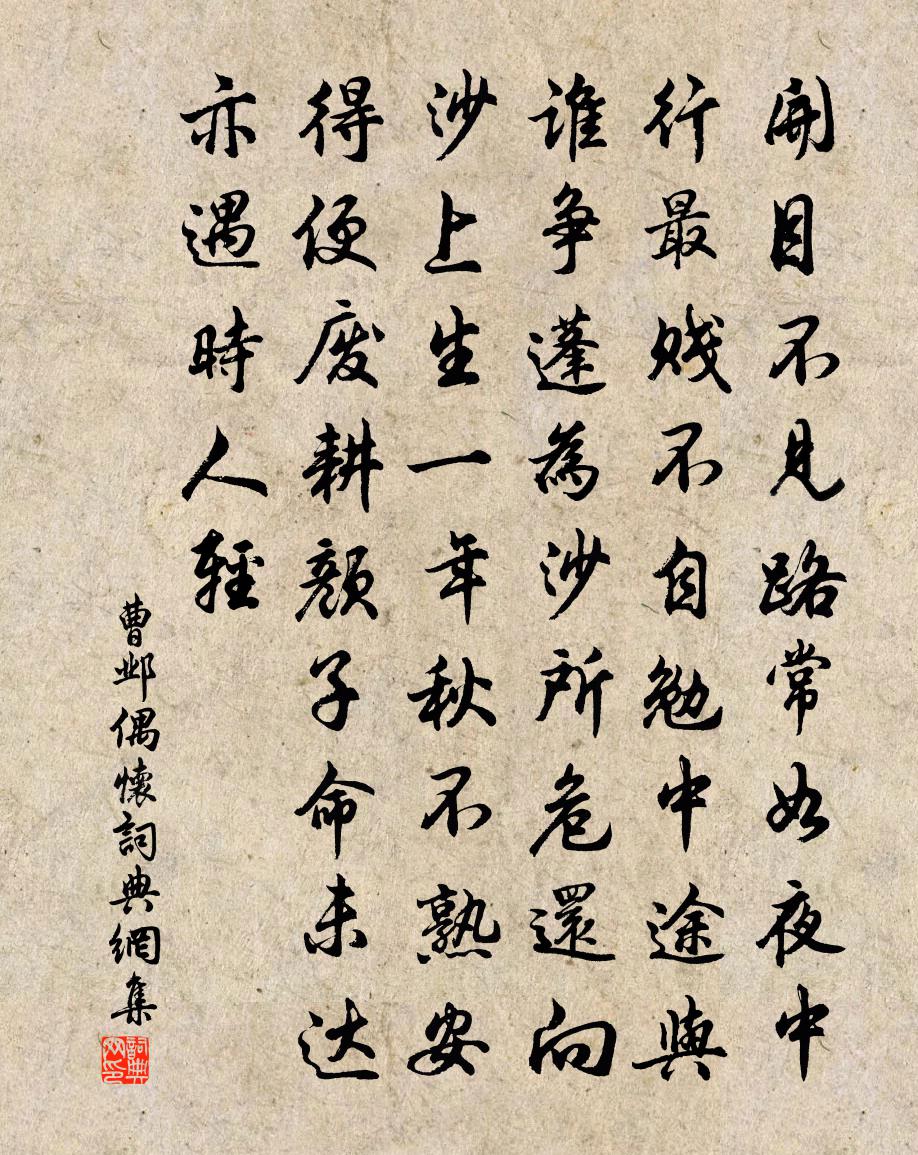 開目不見路常如夜中
行最賤不自勉中途與
誰争蓬為沙所危還向
沙上生一年秋不熟安
得便废耕顏子命未达
亦遇時人輕
曹邺偶懷詞典網集
詞典网印